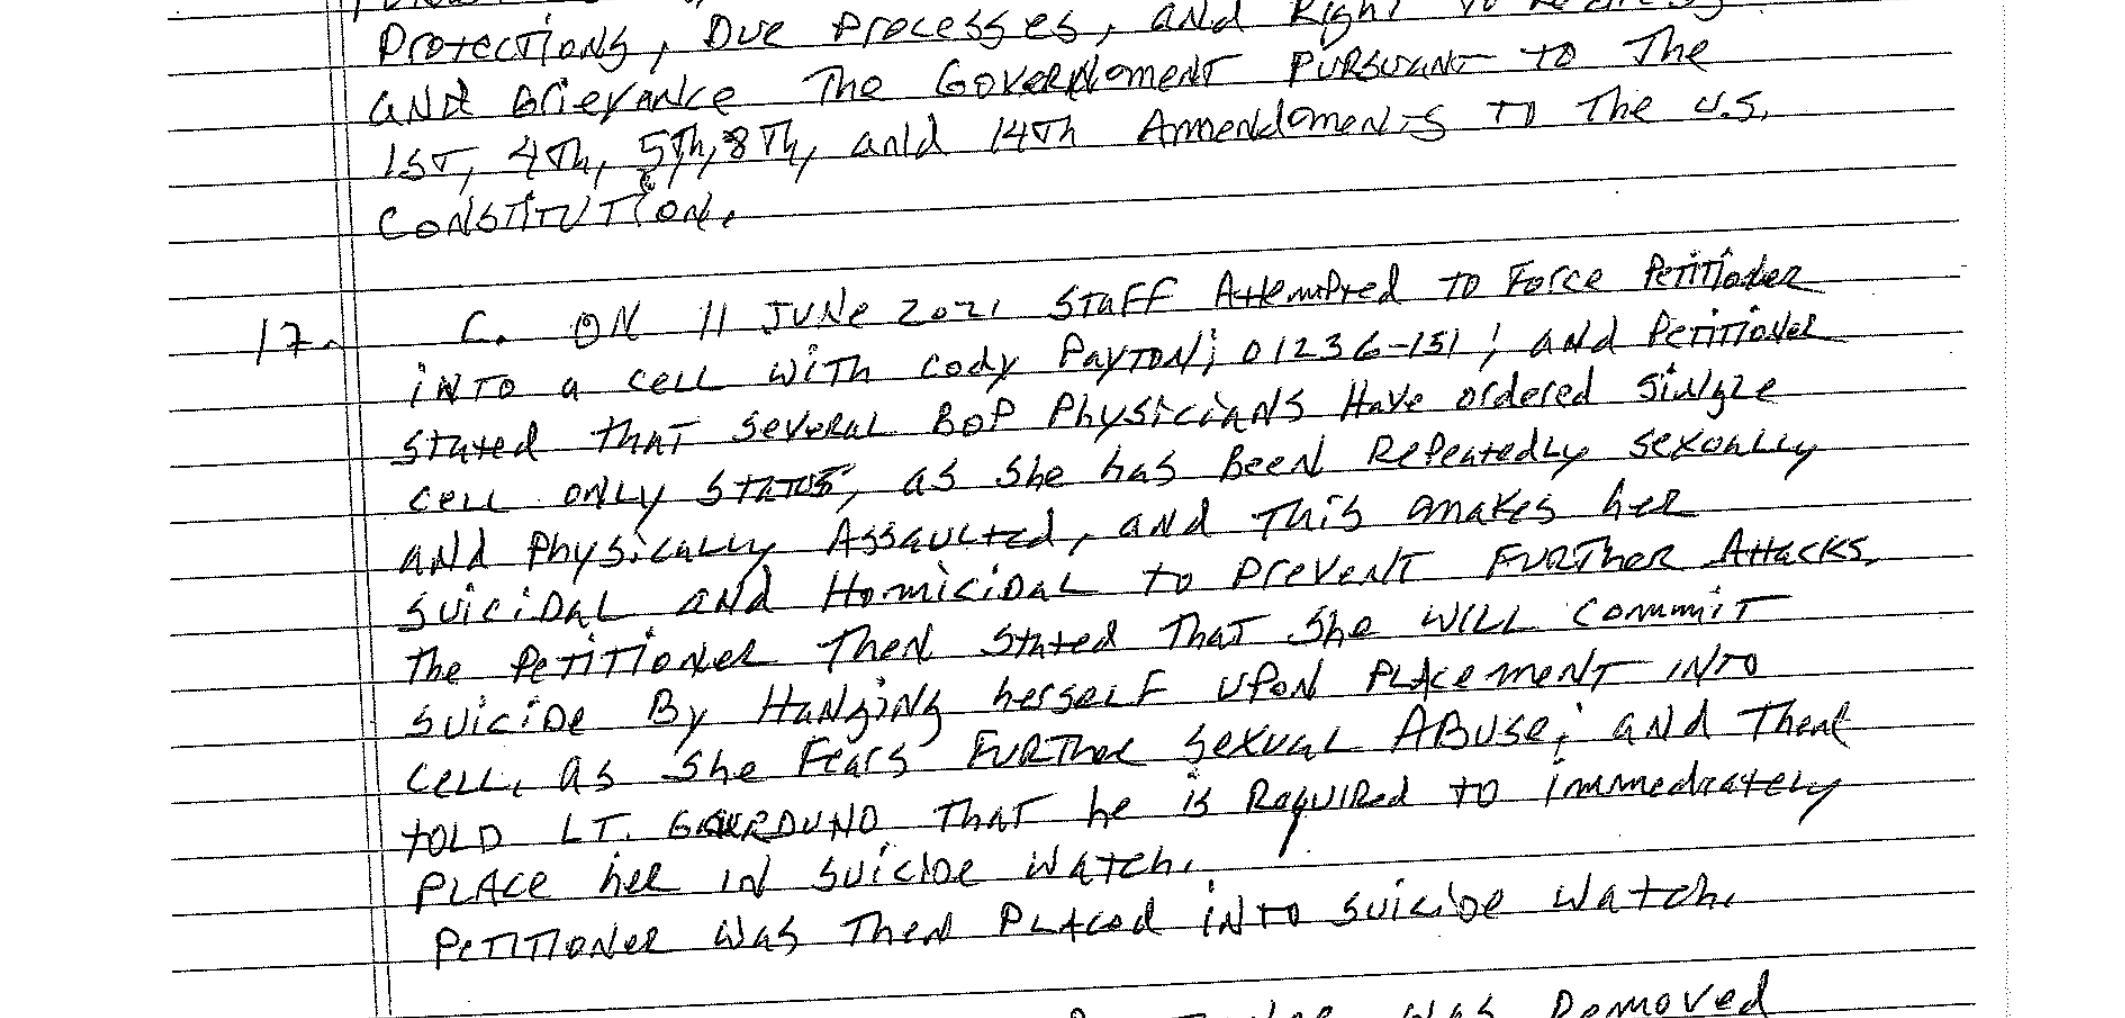 Protections, Due Processes, and Right to Redress
and Grievance The Government Pursuant to The
1st, 4th, 5th, 8th, and 14th Amendments to The U.S.
Constitution.
17. C. ON 11 June 2021 Staff Attempted to Force Petitioner
into a cell with Cody Payton; 01236-151; and Petitioner
stated that several BOP Physicians Have ordered single
cell only status, as she has Been Repeatedly sexually
and Physically Assaulted, and This makes her
suicidal and Homicidal to prevent Further Attacks.
The Petitioner Then stated That she will commit
suicide By Hanging herself upon Placement into
cell, as she Fears Further sexual ABuse; and Then
told Lt. That he is Required to immediately
Place her in suicide watch.
Petitioner was Then Placed into suicide watch.
was Removed